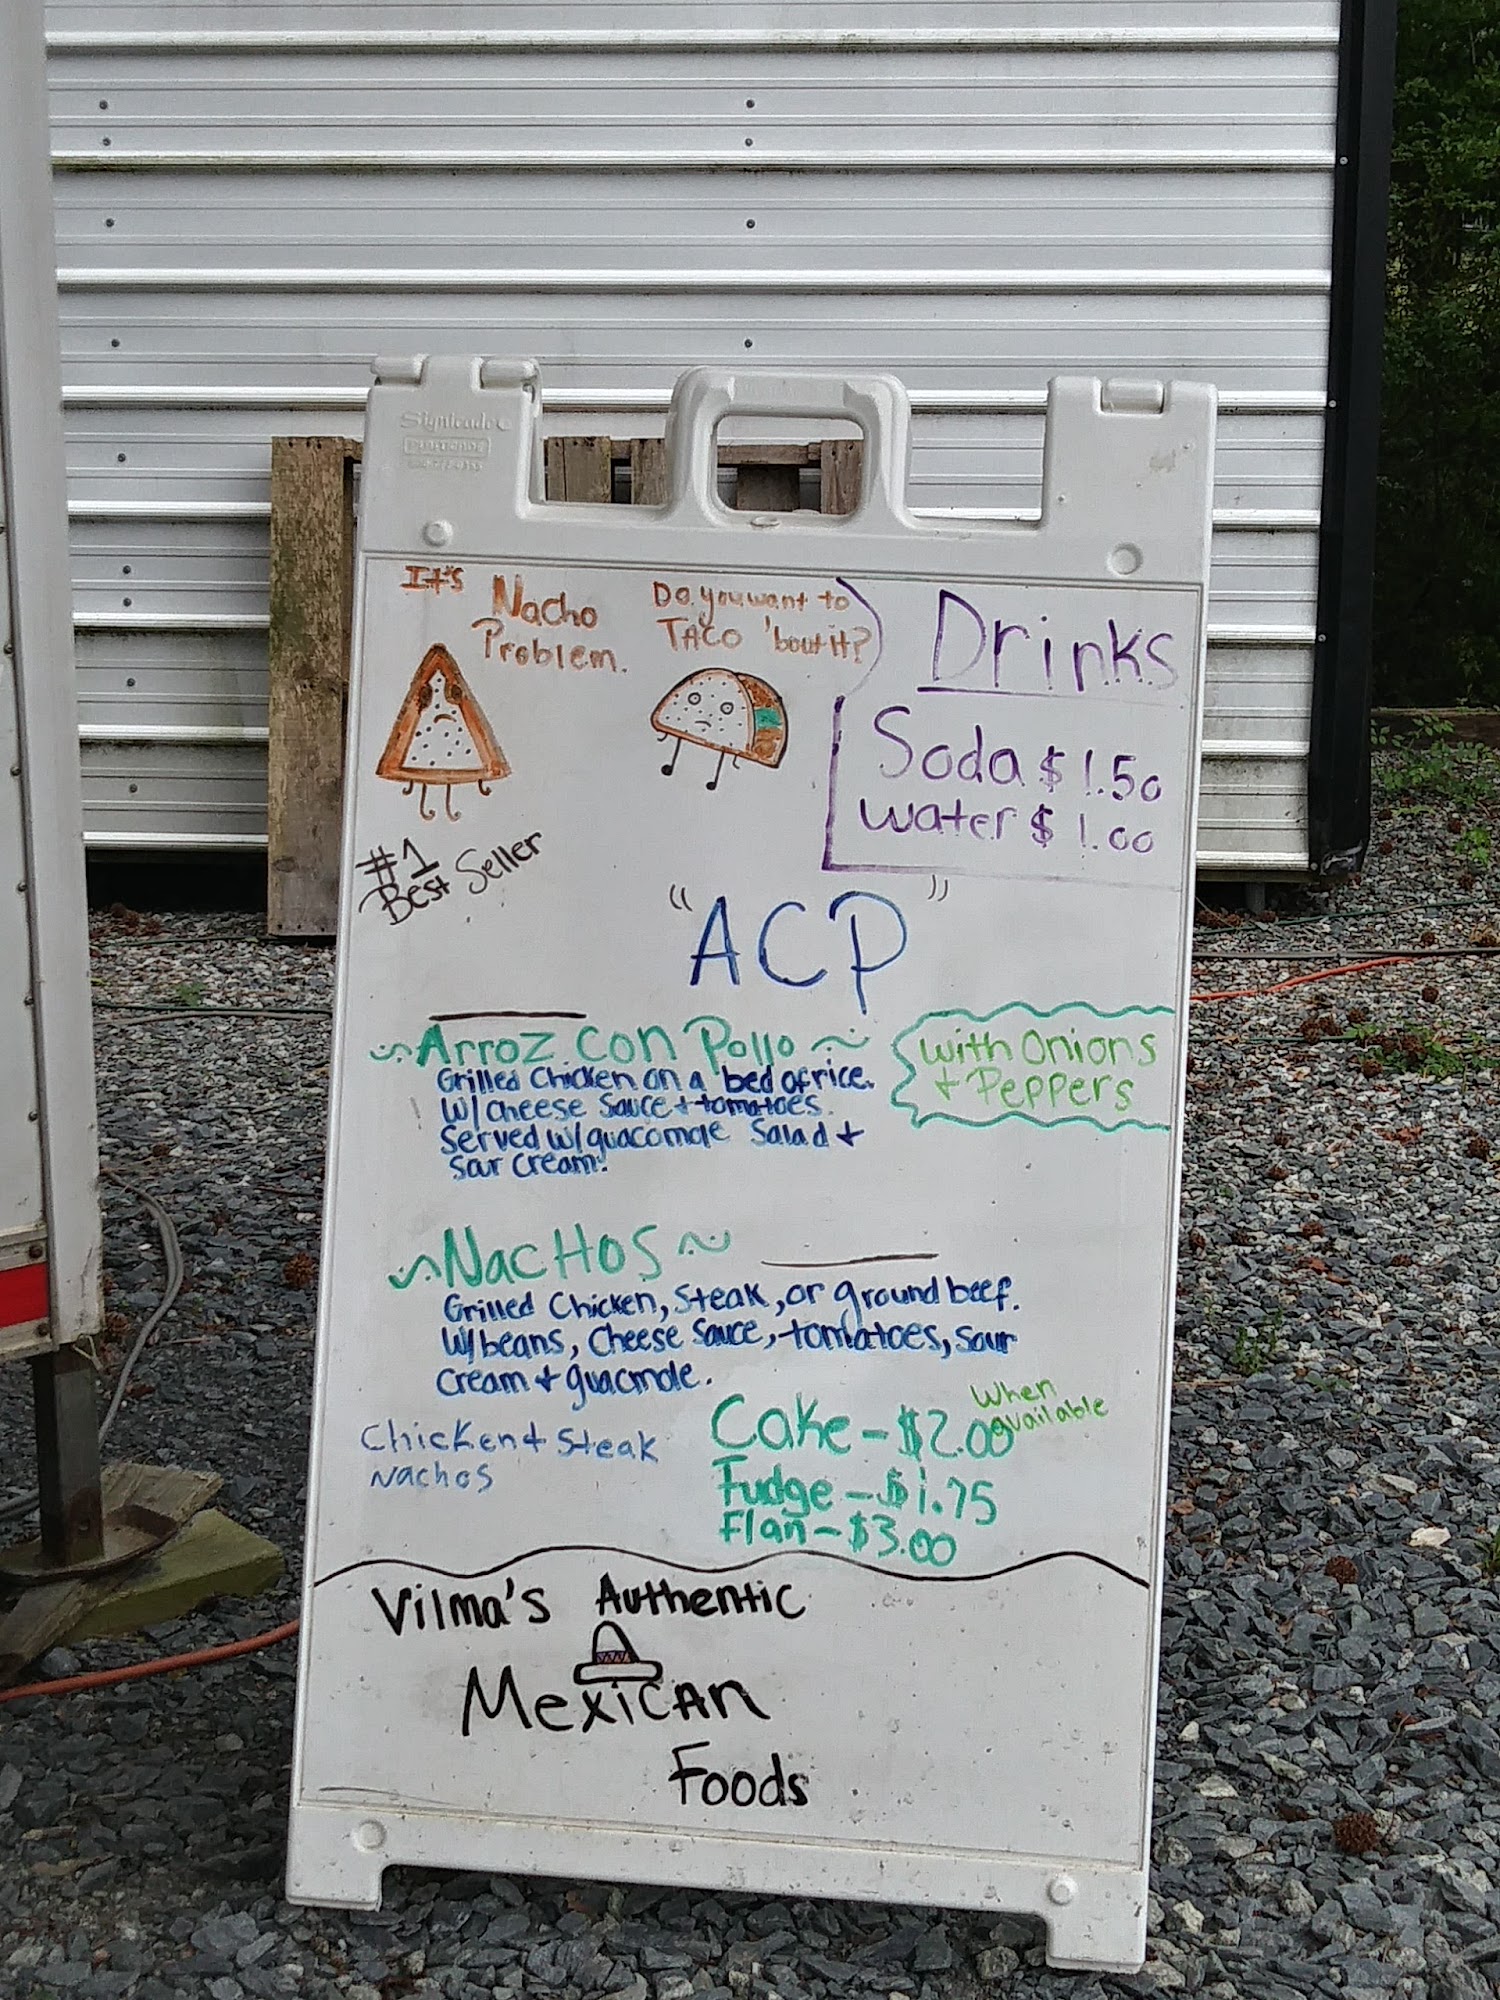 Signicade
It's Nacho
Problem.
Do you want to
TACO 'bout it?
Drinks
Soda $1.50
Water $1.00
#1
Best Seller
"ACP"
~Arroz con Pollo~
Grilled Chicken on a bed of rice.
W/ cheese sauce + tomatoes.
Served w/ guacomole Salad +
Sour cream!
With Onions
+ Peppers
~NacHos~
Grilled Chicken, Steak, or ground beef.
W/ beans, Cheese Sauce, tomatoes, sour
cream + guacmole.
Chicken + Steak
Nachos
Cake - $2.00 When
available
Fudge - $1.75
Flan - $3.00
Vilma's Authentic
Mexican
Foods